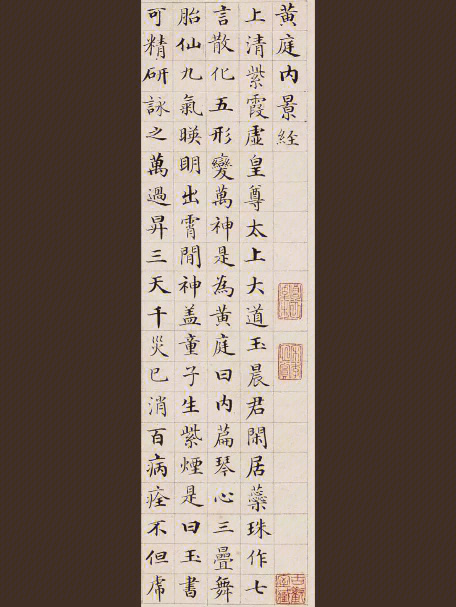 黄庭内景経
上清紫霞虛皇尊太上大道玉晨君閑居蘂珠作七
言散化五形變萬神是為黄庭曰内篇琴心三疊舞
胎仙九氣暎明出霄間神盖童子生紫煙是曰玉書
可精研詠之萬過昇三天千災已消百病痊不但虎